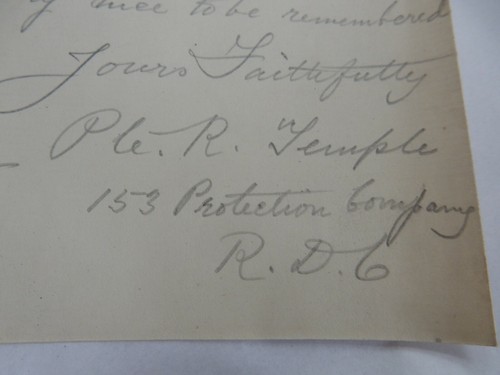 nice to be remembered
Yours Faithfully
Pte. R. Temple
153 Protection Company
R. D. C